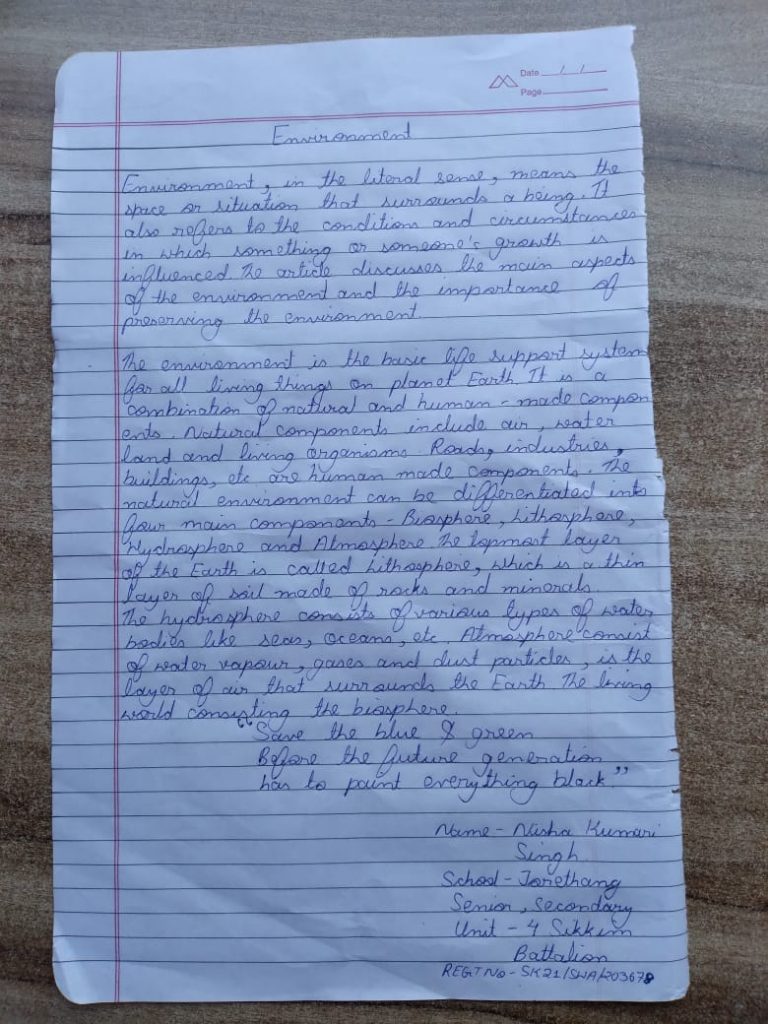 Date / /
Page
Environment
Environment, in the literal sense, means the
space or situation that surrounds a being. It
also refers to the conditions and circumstances
in which something or someone's growth is
influenced. The article discusses the main aspects
of the environment and the importance of
preserving the environment.
The environment is the basic life support system
for all living things on planet Earth. It is a
combination of natural and human-made compon
ents. Natural components include air, water
land and living organisms. Roads, industries,
buildings, etc are human made components. The
natural environment can be differentiated into
four main components - Biosphere, Lithosphere,
Hydrosphere and Atmosphere. The topmost layer
of the Earth is called Lithosphere, which is a thin
layer of soil made of rocks and minerals.
The hydrosphere consists of various types of water
bodies like seas, oceans, etc. Atmosphere consist
of water vapour, gases and dust particles, is the
layer of air that surrounds the Earth. The living
world consisting the biosphere.
"Save the blue & green
Before the future generation
has to paint everything black."
Name - Nisha Kumari
Singh
School - Jorethang
Senior, Secondary
Unit - 4 Sikkim
Battalion
REGT No - SK21/SWA/203678